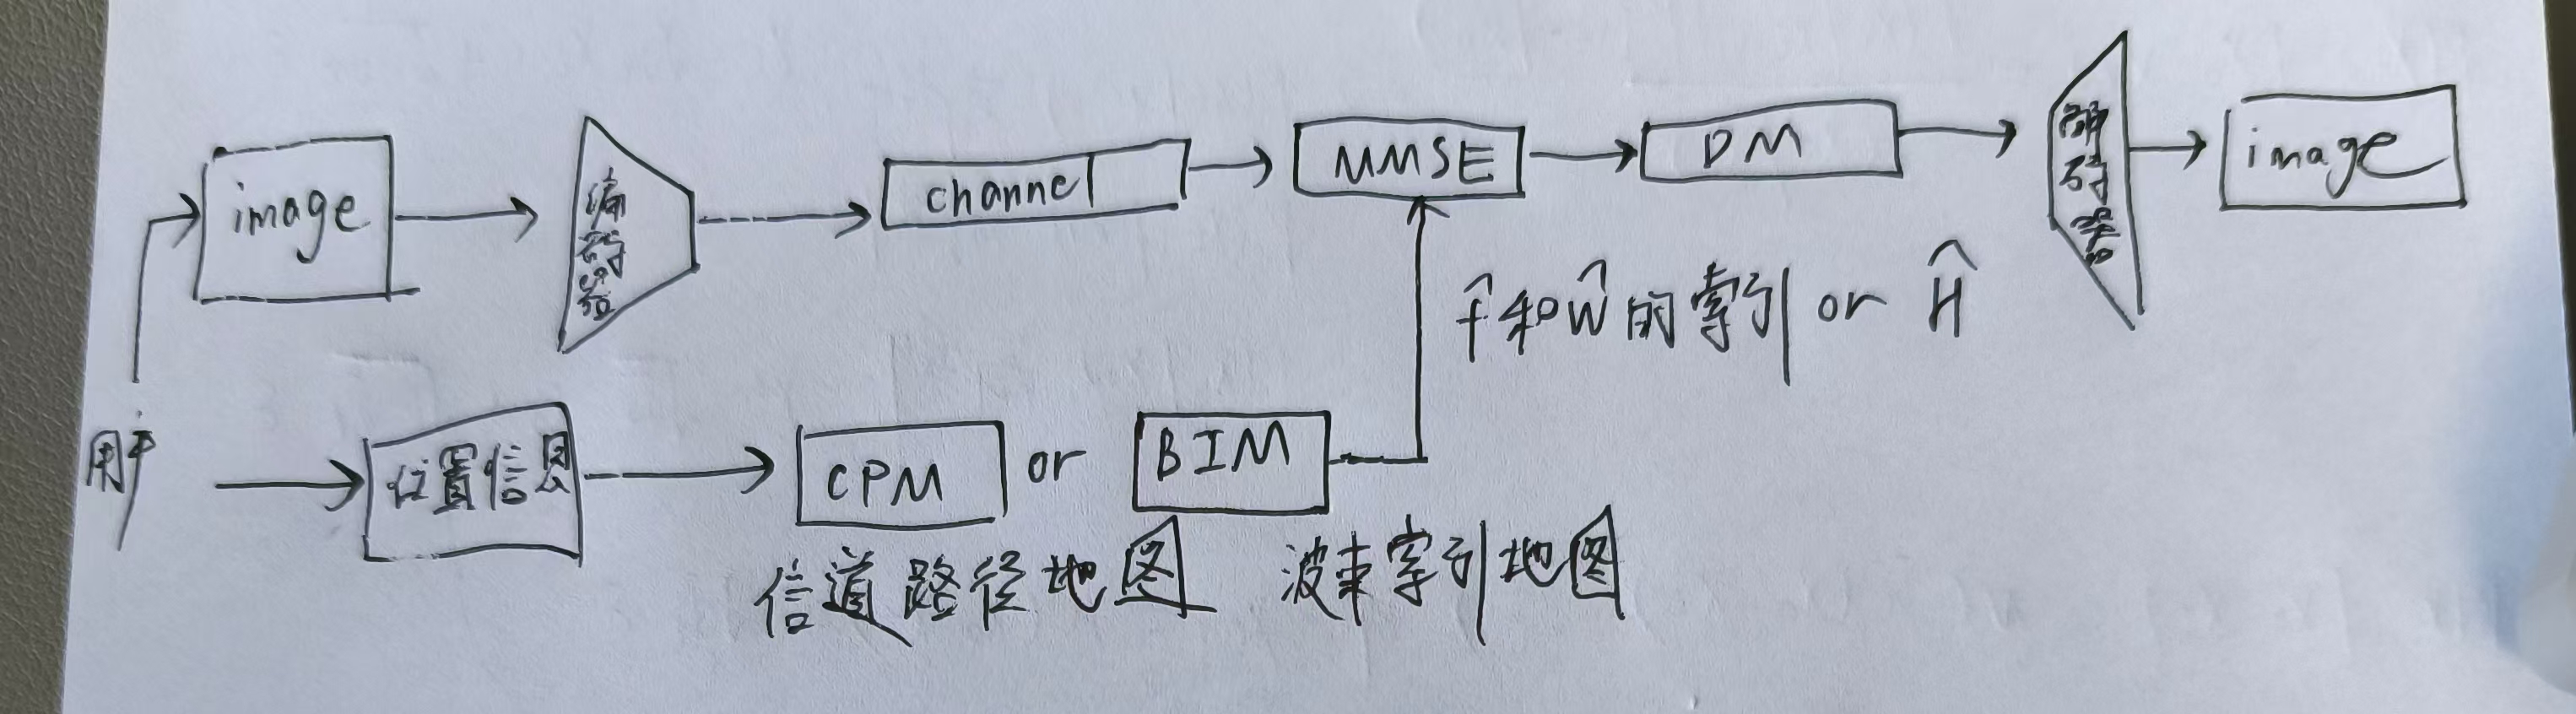 image
编码器
channel
MMSE
DM
解码器
image
f̂和ŵ的索引 or Ĥ
用户
位置信息
CPM or BIM
信道路径地图
波束索引地图